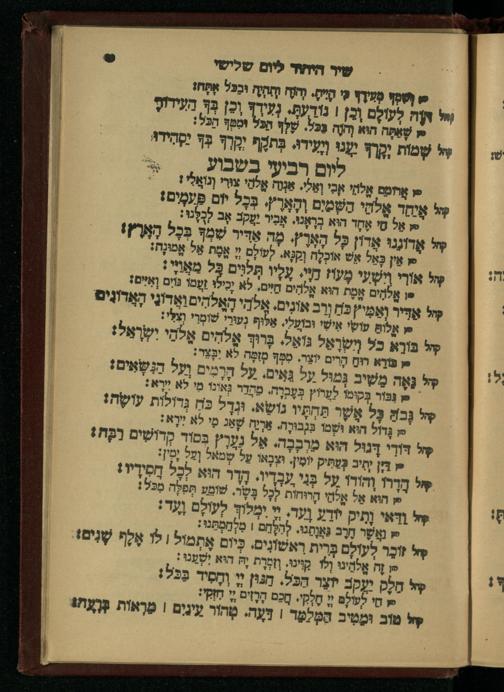 שיר היחוד ליום שלישי
חז ושמך מעידך כי היית. והוה ותהיה ובכל אתה:
קהל הוה לעולם וכן | נודעת. נעידך וכן בך העידות:
חז שאתה הוא והוה בכל. שלך הכל וממך הכל:
קהל שמות יקרך יענו ויעידו. בתוקף יקרך בך יסהידו:
ליום רביעי בשבוע
חז ארומם אלהי אבי ואלי. אנוה אלהי צורי וגואלי:
קהל איחד אלהי השמים והארץ. בכל יום פעמים:
חז אל חי אחד הוא בראנו. אביר יעקב אב לכלנו:
קהל אדוננו אדון כל הארץ. מה אדיר שמך בכל הארץ:
חז אין כאל אש אוכלה וקנא. לעולם יי אמת אל אמונה:
קהל אורי וישעי מעוז חיי. עליו תלוים כל מאויי:
חז אלהים אמת הוא אלהים חיים. לא יכילו זעמו גוים ואיים:
קהל אדיר ואמיץ כח ורב אונים. אלהי האלהים ואדוני האדונים
חז אלוה עושי אישי ובועלי. אלוף נעורי שומרי וצלי:
קהל בורא כל וישראל גואל. ברוך אלהים אלהי ישראל:
חז בורא רוח הרים יוצר. ממך מזמה לא יבצר:
קהל גאה משיב גמול על גאים. על הרמים ועל הנשאים:
חז גבור בקומו לערוץ בעברה. מהדר גאונו מי לא יירא:
קהל גבוה כל אשר תחתיו נושא. וגדל כח גדולות עושה:
חז גדול הוא ושמו בגבורה. אריה שאג מי לא יירא:
קהל דודי דגול הוא מרבבה. אל נערץ בסוד קדושים רבה:
חז דין יתיב בעתיק יומין. וצבאו על שמאל ועל ימין:
קהל הדרו והודו על בני עבדיו. הדר הוא לכל חסידיו:
חז הוא אל אלהי הרוחות לכל בשר. שומע תפלה מכל:
קהל ודאי ותיק יודע ועד. יי ימלוך לעולם ועד:
חז ואשר חרב גאותנו. להלחם | מלחמתנו:
קהל זוכר לעולם ברית ראשונים. כיום אתמול | לו אלף שנים:
חז זה אלהינו ולו קוינו. וזמרת יה הוא ישענו:
קהל חלק יעקב יוצר הכל. חנון יי וחסיד בכל:
חז חי לעולם יי חלקי. חכם הרזים יי חזקי:
קהל טוב ומטיב המלמד | דעה. טהור עינים | מראות ברעה: